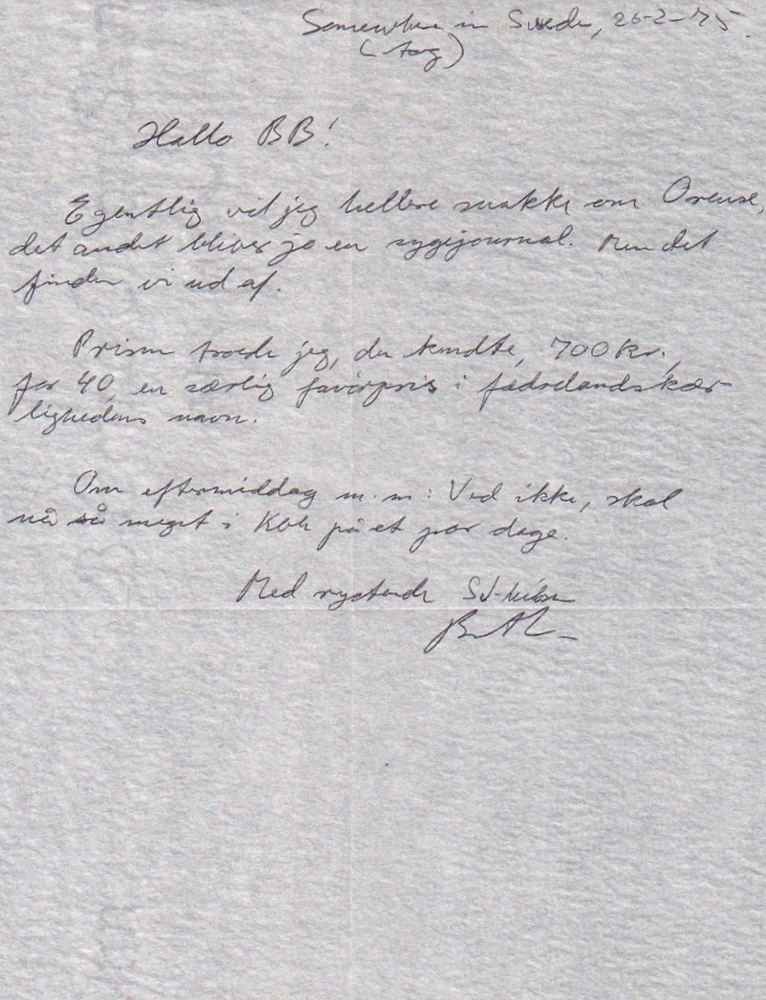 Somewhere in Sweden, 26-2-75.
(tog)
Hallo BB!
Egentlig vil jeg hellere snakke om Orense,
det andet bliver jo en sygejournal. Men det
finder vi ud af.
Prisen troede jeg, du kendte, 700 kr.,
for 40, en særlig favørpris i fædrelandskær-
lighedens navn.
Om eftermiddag m.m: Ved ikke, skal
nå så meget i Kbh på et par dage.
Med rystende SJ-hilsen